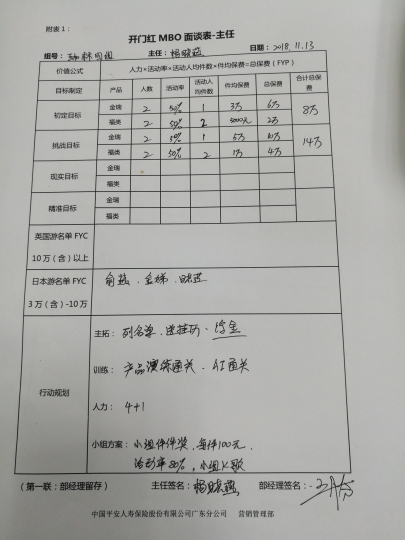 附表1：
开门红 MBO 面谈表-主任
组号： 主任：杨晓燕 日期：2018.11.13
价值公式 人力×活动率×活动人均件数×件均保费=总保费（FYP）
目标制定 产品 人数 活动率 活动人均件数 件均保费 总保费 合计总保费
初定目标 金瑞 2 50% 1 3万 6万 8万
福类 2 50% 2 5000元 2万
挑战目标 金瑞 2 50% 1 5万 10万 14万
福类 2 50% 2 1万 4万
现实目标 金瑞
福类
精准目标 金瑞
福类
英国游名单 FYC
10万（含）以上
日本游名单 FYC
3万（含）-10万
行动规划
主拓：列名单、送挂历、
训练：产品演练通关、
人力：4+1
小组方案：小组件件奖，每件100元，
活动率80%，小组K歌
（第一联：部经理留存） 主任签名：杨晓燕 部经理签名：
中国平安人寿保险股份有限公司广东分公司 营销管理部